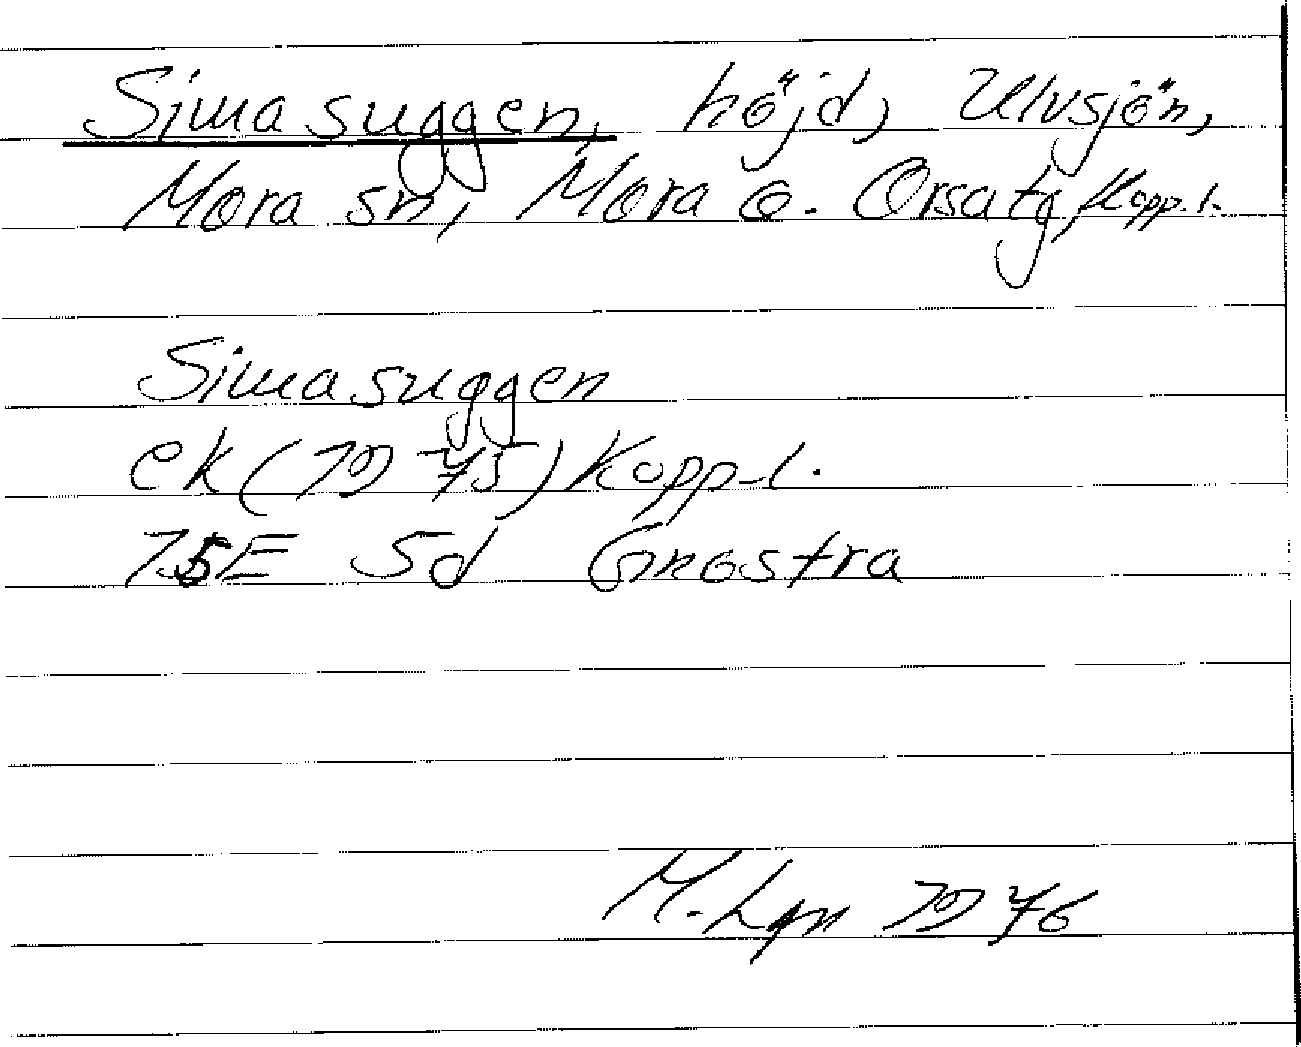 Simasuggen, höjd, Ulvsjön,
Mora sn, Mora o. Orsa tg, Kopp. l.
Simasuggen
ek (1975) Kopp. l.
15E 5d Gnostra
M. Lgn 1976